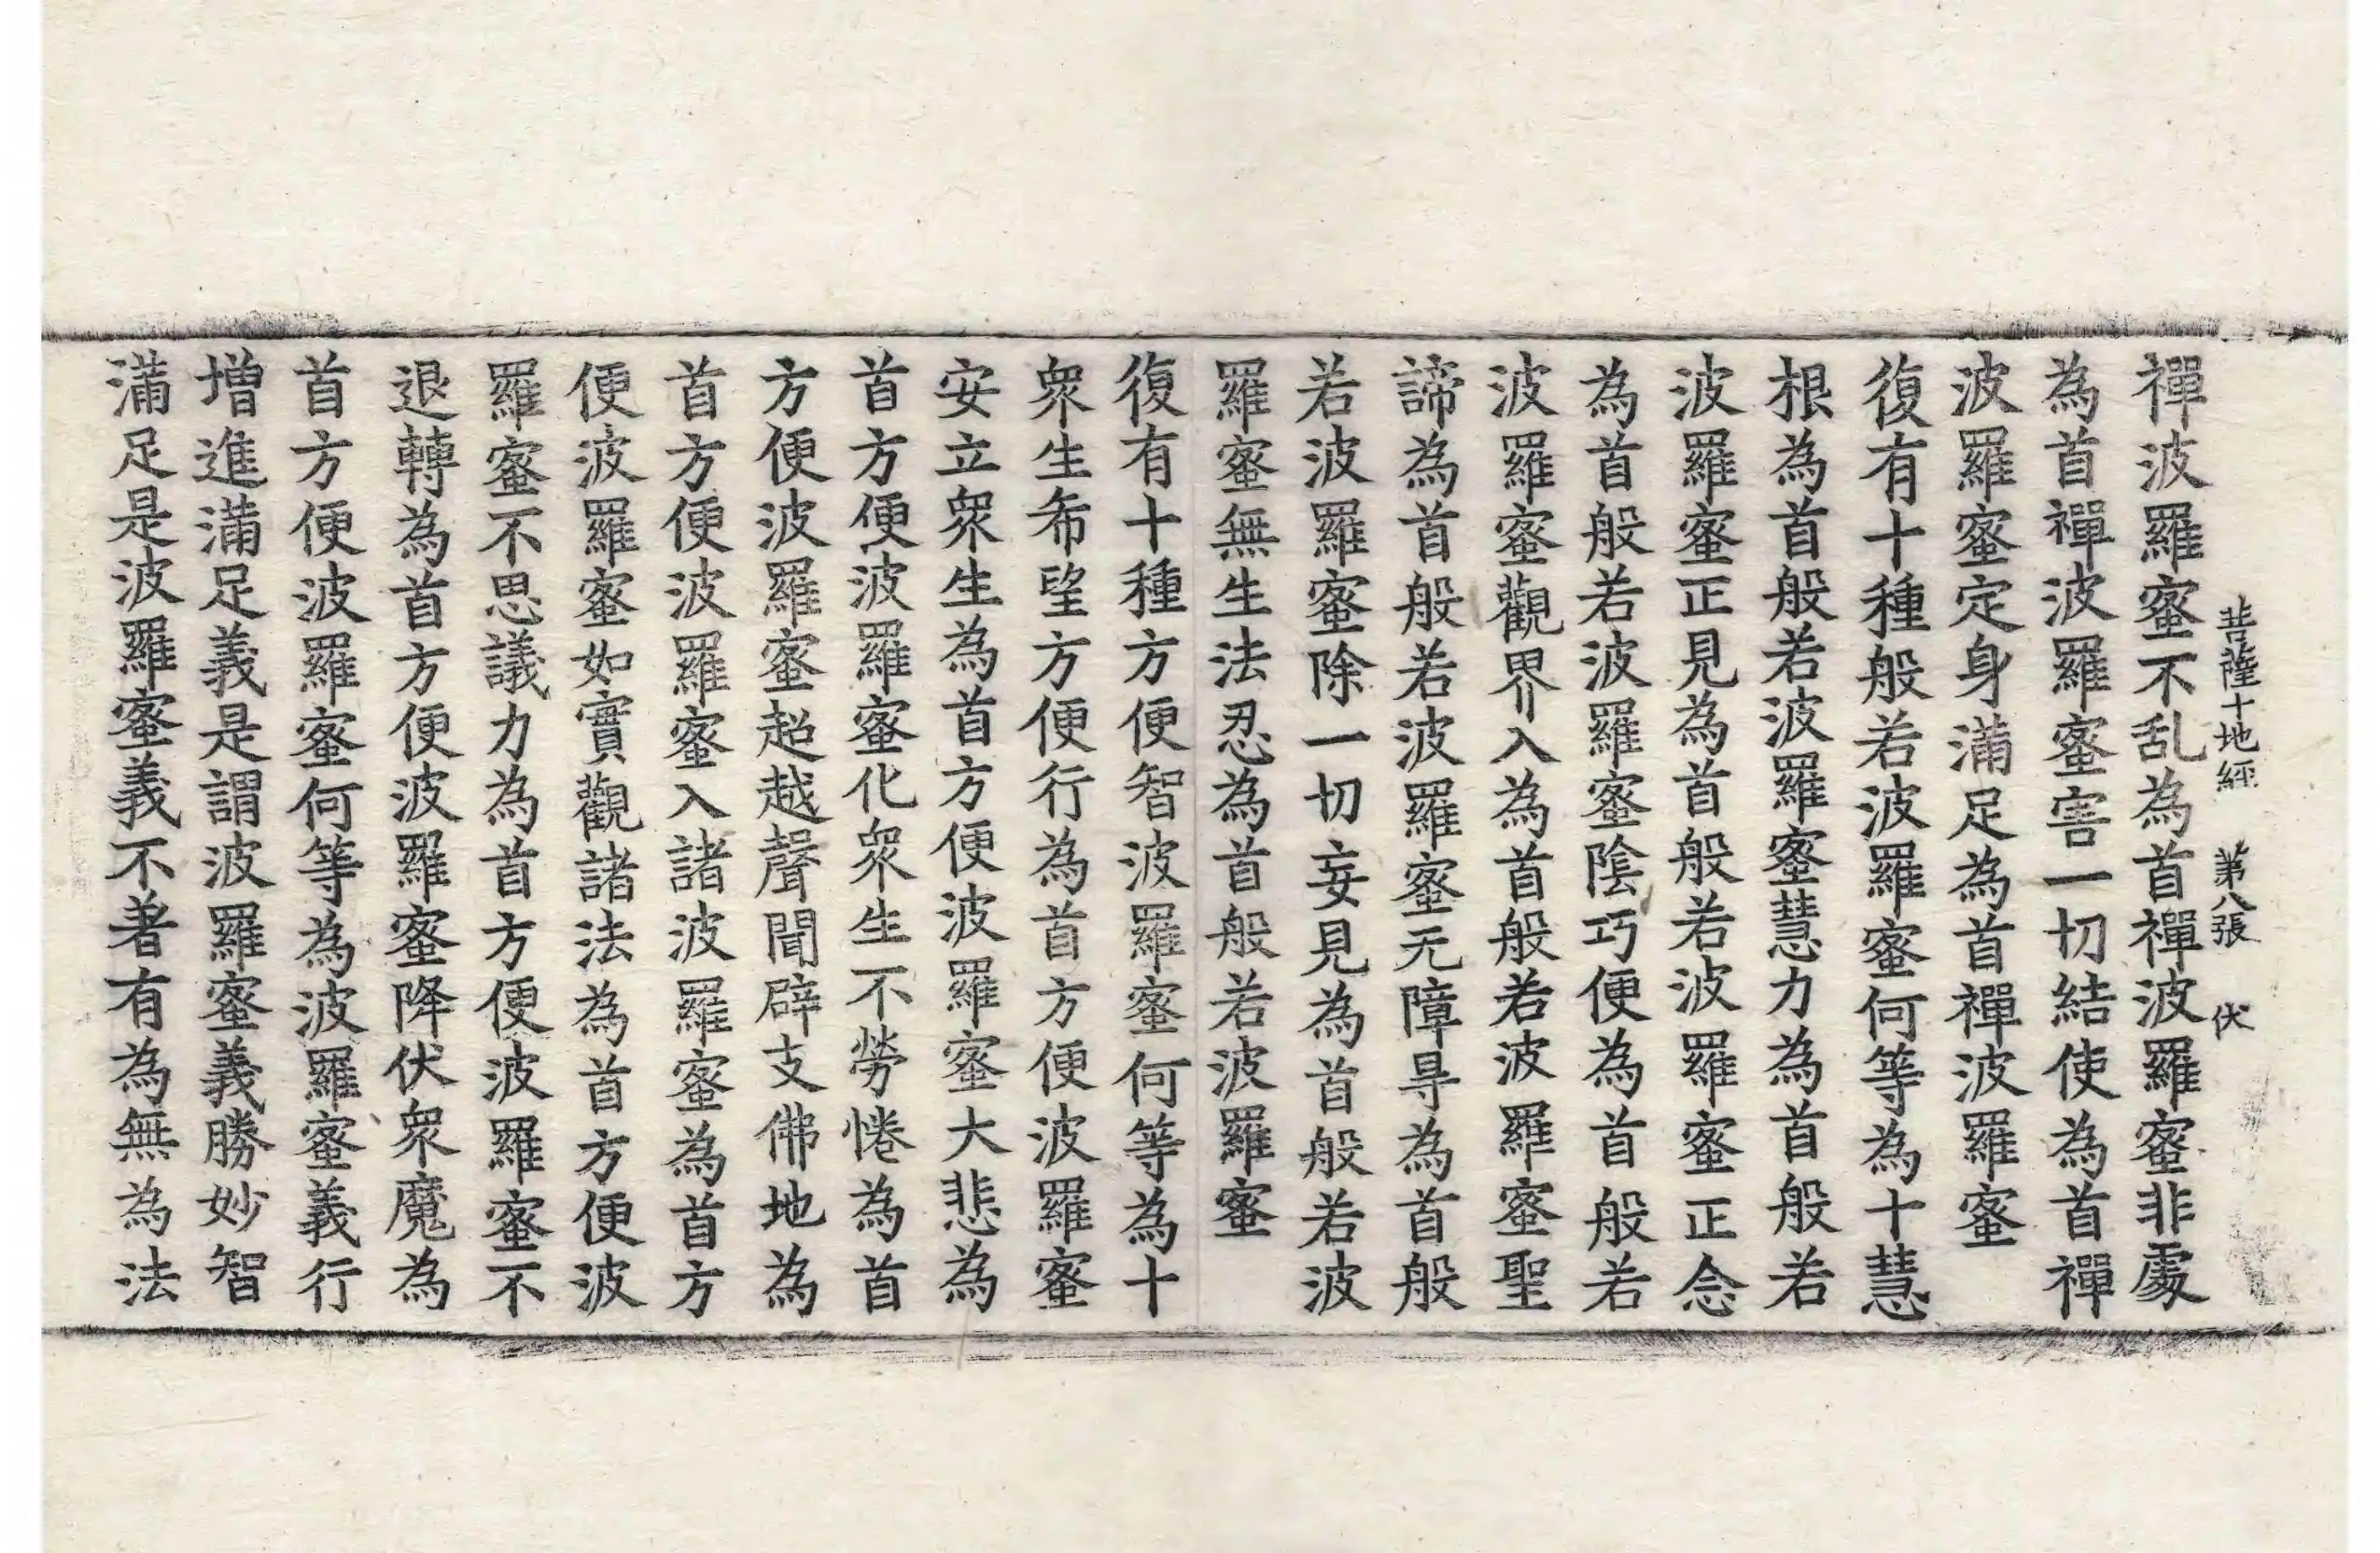 菩薩十地經 第八張 伏
禪波羅蜜不乱為首禪波羅蜜非處
為首禪波羅蜜害一切結使為首禪
波羅蜜定身滿足為首禪波羅蜜
復有十種般若波羅蜜何等為十慧
根為首般若波羅蜜慧力為首般若
波羅蜜正見為首般若波羅蜜正念
為首般若波羅蜜陰巧便為首般若
波羅蜜觀界入為首般若波羅蜜聖
諦為首般若波羅蜜无障㝵為首般
若波羅蜜除一切妄見為首般若波
羅蜜無生法忍為首般若波羅蜜
復有十種方便智波羅蜜何等為十
衆生希望方便行為首方便波羅蜜
安立衆生為首方便波羅蜜大悲為
首方便波羅蜜化衆生不勞惓為首
方便波羅蜜超越聲聞辟支佛地為
首方便波羅蜜入諸波羅蜜為首方
便波羅蜜如實觀諸法為首方便波
羅蜜不思議力為首方便波羅蜜不
退轉為首方便波羅蜜降伏衆魔為
首方便波羅蜜何等為波羅蜜義行
增進滿足義是謂波羅蜜義勝妙智
滿足是波羅蜜義不著有為無為法